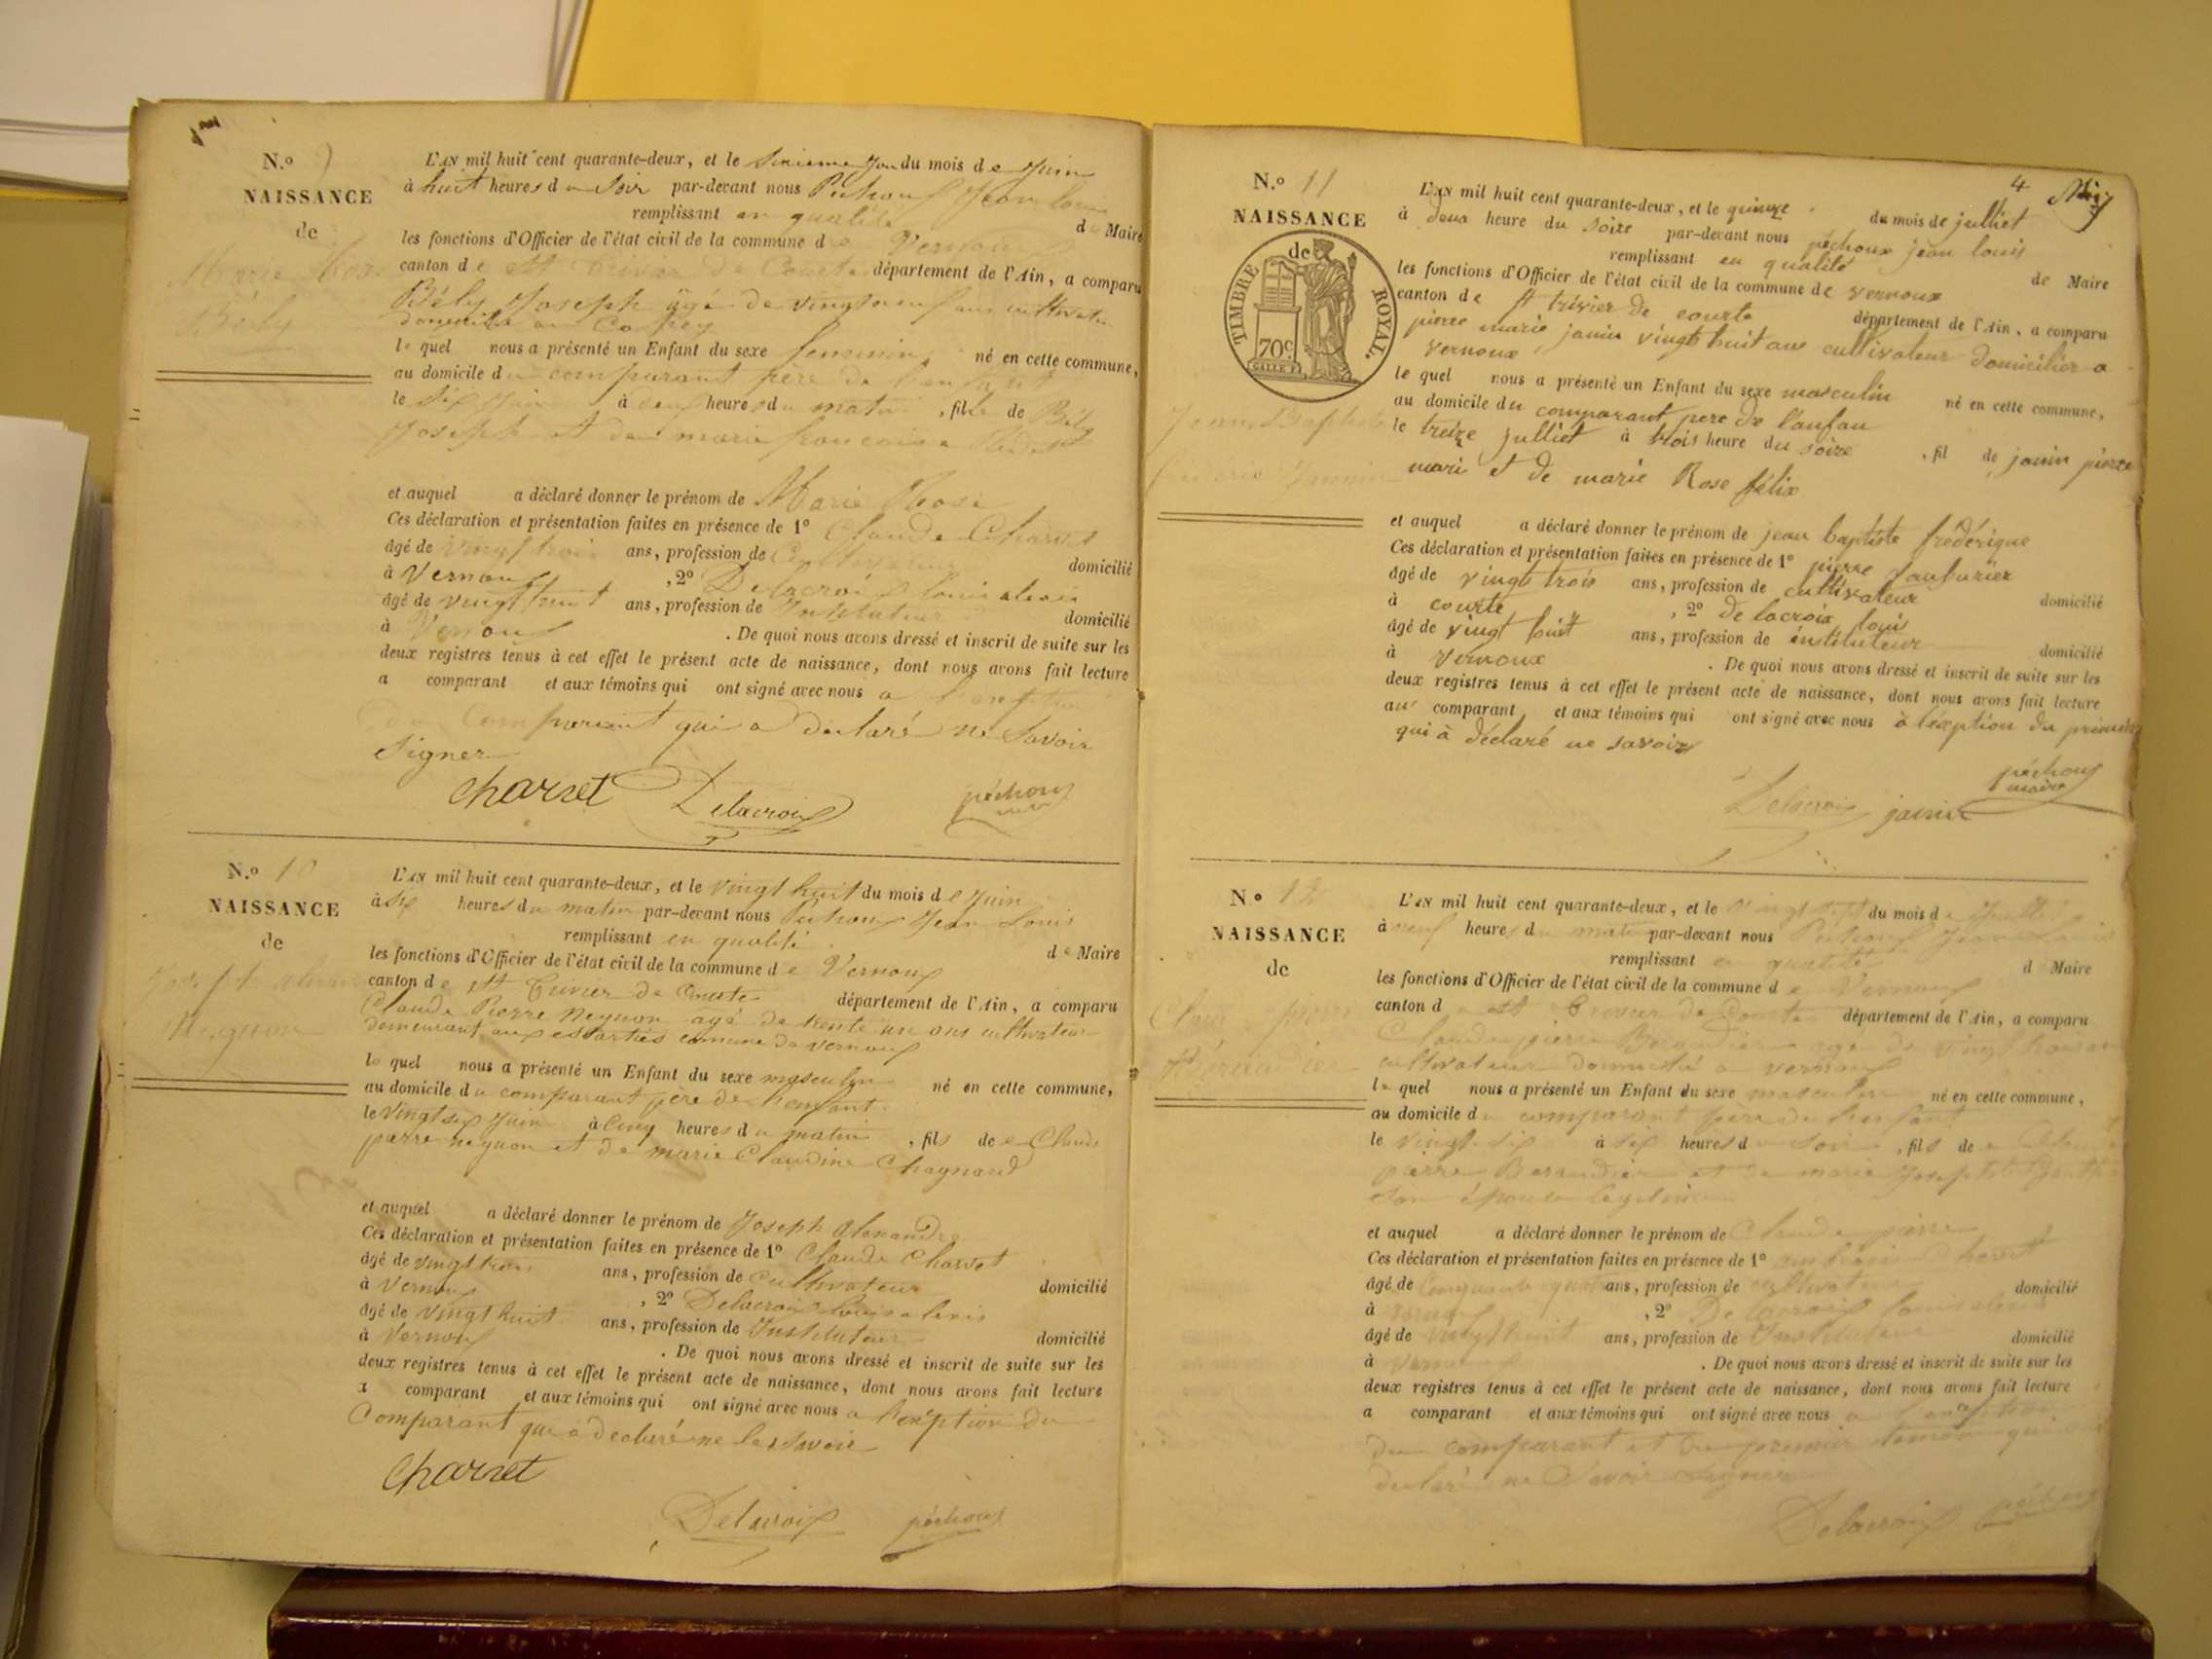 N.o 9
NAISSANCE
de
Marie Rose
Bély
L'AN mil huit cent quarante-deux, et le sixieme jour du mois de Juin
à huit heures du Soir par-devant nous Péchoux Jean Louis
remplissant en qualité de Maire
les fonctions d'Officier de l'état civil de la commune de Vernoux
canton de St Trivier de Courtes département de l'Ain, a comparu
Bély Joseph âgé de vingt neuf ans cultivateur
domicilié au
le quel nous a présenté un Enfant du sexe feminin né en cette commune,
au domicile du comparant père de l'enfant
le Six Juin à heures du matin, fille de Bély
Joseph et de marie francoise
et auquel a déclaré donner le prénom de Marie Rose
Ces déclaration et présentation faites en présence de 1° Claude Charvet
âgé de vingt trois ans, profession de Cultivateur domicilié
à Vernoux, 2° Delacroix louis alexis
âgé de vingt huit ans, profession de Instituteur domicilié
à Vernoux. De quoi nous avons dressé et inscrit de suite sur les
deux registres tenus à cet effet le présent acte de naissance, dont nous avons fait lecture
a comparant et aux témoins qui ont signé avec nous a l'exeption
du Comparant qui a declaré ne Savoir
Signer
Charvet Delacroix péchoux
N.o 10
NAISSANCE
de
Joseph
Neynon
L'AN mil huit cent quarante-deux, et le vingt huit du mois de Juin
à six heures du matin par-devant nous Péchoux Jean Louis
remplissant en qualité de Maire
les fonctions d'Officier de l'état civil de la commune de Vernoux
canton de St Trivier de Courtes département de l'Ain, a comparu
Claude Pierre Neynon agé de trente un ans cultivateur
demeurant aux essarties comune de vernoux
le quel nous a présenté un Enfant du sexe masculin né en cette commune,
au domicile du comparant père de l'enfant
le vingt six Juin à Cinq heures du matin, fils de Claude
pierre neynon et de marie Claudine Chagnard
et auquel a déclaré donner le prénom de Joseph alexandre
Ces déclaration et présentation faites en présence de 1° Claude Charvet
âgé de vingt trois ans, profession de Cultivateur domicilié
à Vernoux, 2° Delacroix louis alexis
âgé de vingt huit ans, profession de Instituteur domicilié
à Vernoux. De quoi nous avons dressé et inscrit de suite sur les
deux registres tenus à cet effet le présent acte de naissance, dont nous avons fait lecture
a comparant et aux témoins qui ont signé avec nous a l'exéption du
Comparant qui a declaré ne le savoir
Charvet
Delacroix péchoux
4
N.o 11
NAISSANCE
de
TIMBRE ROYAL.
70c
Jean Baptiste
frederic Jannin
L'AN mil huit cent quarante-deux, et le quinze du mois de julliet
à deux heure du soire par-devant nous péchoux jean louis
remplissant en qualité de Maire
les fonctions d'Officier de l'état civil de la commune de vernoux
canton de st trivier de courte département de l'Ain, a comparu
pierre marie janin vingt huit ans cultivateur domicilier a
vernoux
le quel nous a présenté un Enfant du sexe masculin né en cette commune,
au domicile du comparant pere de l'anfan
le treize julliet à trois heure du soire, fil de janin pierre
mari et de marie Rose félix
et auquel a déclaré donner le prénom de jean baptiste frédérique
Ces déclaration et présentation faites en présence de 1° pierre
âgé de vingt trois ans, profession de cultivateur domicilié
à courte, 2° de lacroix louis
âgé de vingt huit ans, profession de instituteur domicilié
à vernoux. De quoi nous avons dressé et inscrit de suite sur les
deux registres tenus à cet effet le présent acte de naissance, dont nous avons fait lecture
au comparant et aux témoins qui ont signé avec nous à l'exéption du
qui à déclaré ne savoir
péchoux
maire
Delacroix janin
N° 12
NAISSANCE
de
Claude pierre
L'AN mil huit cent quarante-deux, et le vingt sept du mois de juillet
à neuf heures du matin par-devant nous Péchoux Jean Louis
remplissant en qualité d Maire
les fonctions d'Officier de l'état civil de la commune de Vernoux
canton d St Trivier de Courtes département de l'Ain, a comparu
Claude pierre agé de vingt
cultivateur domicilié a vernoux
le quel nous a présenté un Enfant du sexe masculin né en cette commune,
au domicile du comparant pere de l'enfant
le vingt six à six heures du soir, fils de Claude
pierre et de marie
son épouse légitime
et auquel a déclaré donner le prénom de Claude pierre
Ces déclaration et présentation faites en présence de 1°
âgé de Cinquante quatre ans, profession de cultivateur domicilié
à Vernoux, 2° De lacroix louis alexis
âgé de vingt huit ans, profession de Instituteur domicilié
à Vernoux. De quoi nous avons dressé et inscrit de suite sur les
deux registres tenus à cet effet le présent acte de naissance, dont nous avons fait lecture
a comparant et aux témoins qui ont signé avec nous a
du comparant et du premier témoin qui ont
declaré ne Savoir Signer
Delacroix péchoux